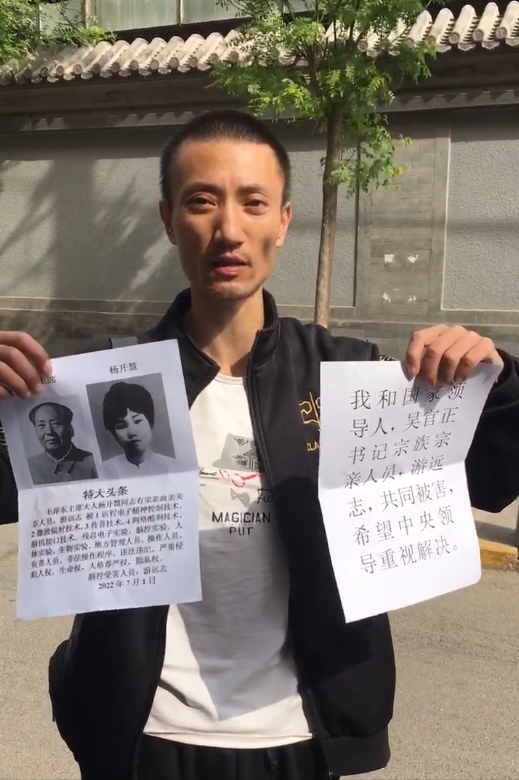 席 杨开慧
特大头条
毛泽东主席夫人杨开慧同志有宗亲血亲关
系人员,游远志 被1.远程电子精神控制技术,
2.微波辐射技术,3.传音技术,4.网络酷刑技术,
脑机接口技术,残忍电子实验,脑控实验,人
体实验,生物实验,地方管理人员,操作人员,
负责人员,非法操作程序,违法违记,严重侵
犯人权,生命权,人格尊严权,隐私权。
脑控受害人员:游远志
2022年7月1日
我和国家领
导人,吴官正
书记宗族宗
亲人员,游远
志,共同被害,
希望中央领
导重视解决。
MAGICIAN
PUT